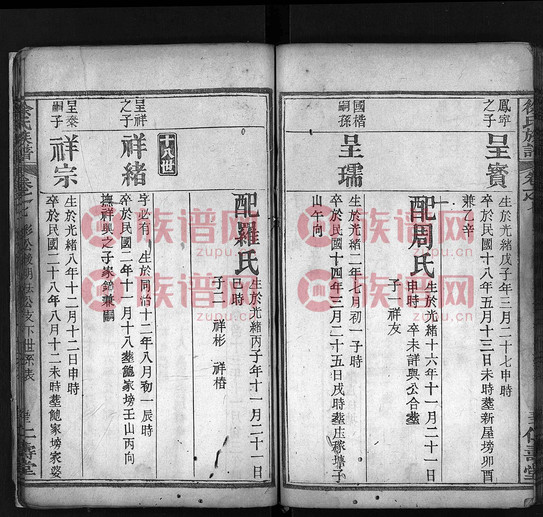 徐氏族譜
鳳寧之子
呈寶
生於光緒戊子年三月二十七申時
卒於民國十八年五月十三日未時塟新屋塝卯酉
兼乙辛
配周氏
生於光緒十六年十一月二十一日
申時 卒未詳與公合塟
子一 祥友
國楷嗣孫
呈瓀
生於光緒二年七月初一子時
卒於民國十四年三月二十五日戌時塟生
山午向
配羅氏
生於光緒丙子年十一月二十一日
巳時
子二 祥彬 祥椿
十八世
呈祥之子
祥緒
字必有 生於同治十二年八月初一辰時
卒於民國二年十一月十八塟饒家塝王山丙向
撫祥興之子家錦兼嗣
呈泰嗣子
祥宗
生於光緒八年十二月十二日申時
卒於民國二十八年八月十二未時塟饒家塝家婆
徐氏族譜
下世系表
仁壽堂
族谱网
zupu.cn